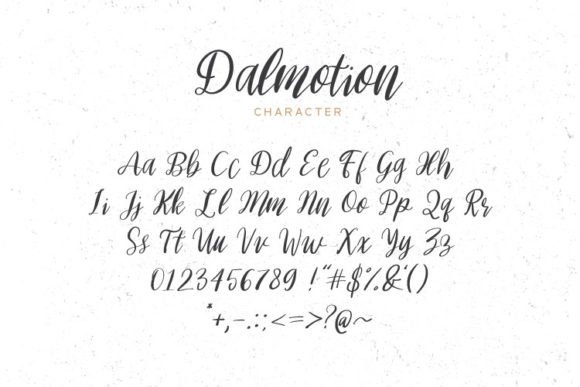 Dalmotion
CHARACTER
Aa Bb Cc Dd Ee Ff Gg Hh
Ii Jj Kk Ll Mm Nn Oo Pp Qq Rr
Ss Tt Uu Vv Ww Xx Yy Zz
0123456789 !"#$%&'()
*+,-.:;<=>?@~